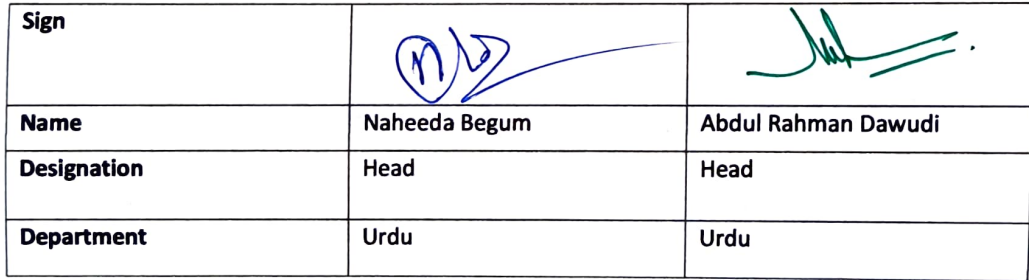 Sign
Name Naheeda Begum Abdul Rahman Dawudi
Designation Head Head
Department Urdu Urdu